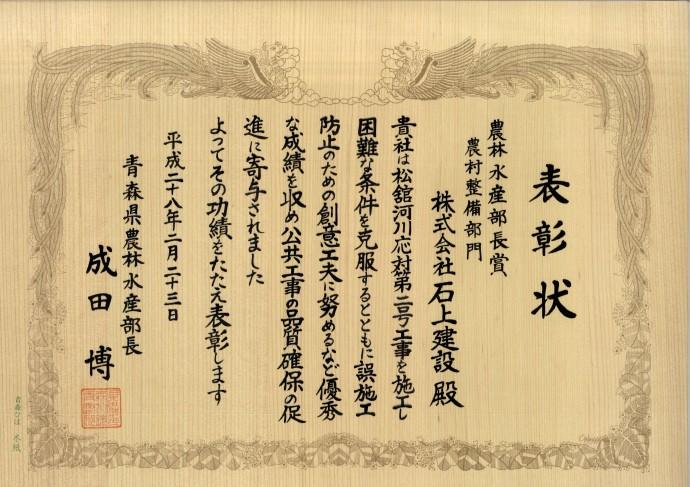 表彰状
農林水産部長賞
農村整備部門
株式会社石上建設 殿
貴社は松舘河川応対第二号工事を施工し
困難な条件を克服するとともに誤施工
防止のための創意工夫に努めるなど優秀
な成績を収め公共工事の品質確保の促
進に寄与されました
よってその功績をたたえ表彰します
平成二十八年二月二十三日
青森県農林水産部長
成田 博
青森ひば 木紙